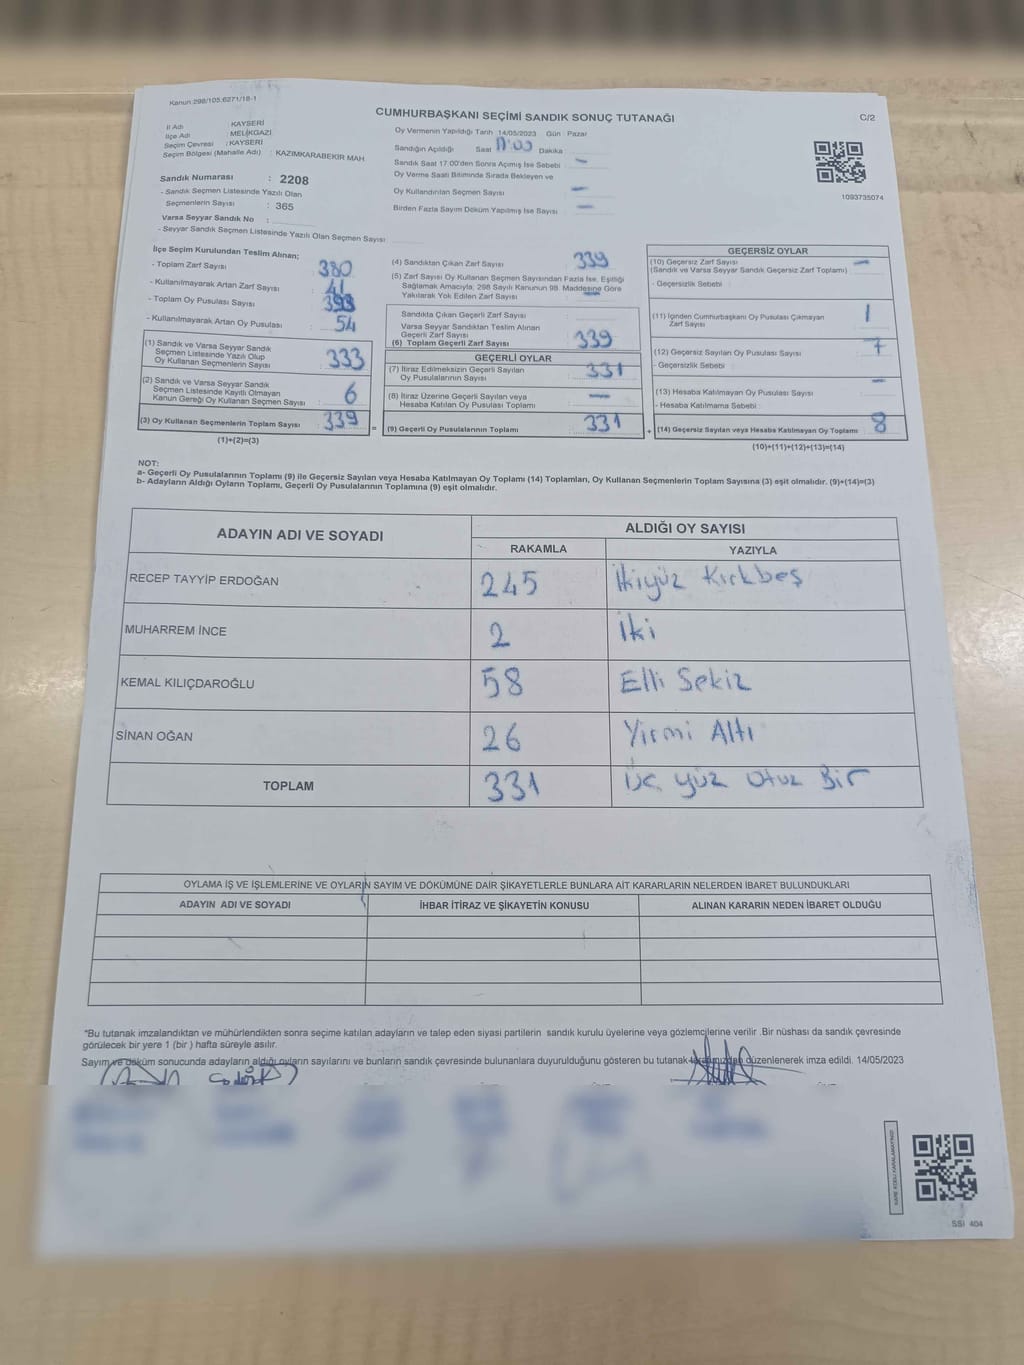 Kanun:298/105:6271/18-1
CUMHURBAŞKANI SEÇİMİ SANDIK SONUÇ TUTANAĞI
C/2
İl Adı : KAYSERİ
İlçe Adı : MELİKGAZİ
Seçim Çevresi : KAYSERİ
Seçim Bölgesi (Mahalle Adı) : KAZIMKARABEKIR MAH
Sandık Numarası : 2208
- Sandık Seçmen Listesinde Yazılı Olan
Seçmenlerin Sayısı : 365
Varsa Seyyar Sandık No :
- Seyyar Sandık Seçmen Listesinde Yazılı Olan Seçmen Sayısı
Oy Vermenin Yapıldığı Tarih 14/05/2023 Gün Pazar
Sandığın Açıldığı Saat 17:00 Dakika
Sandık Saat 17.00'den Sonra Açmış İse Sebebi —
Oy Verme Saati Bitiminde Sırada Bekleyen ve
Oy Kullandırılan Seçmen Sayısı —
Birden Fazla Sayım Döküm Yapılmış İse Sayısı —
1093735074
İlçe Seçim Kurulundan Teslim Alınan;
- Toplam Zarf Sayısı 380
- Kullanılmayarak Artan Zarf Sayısı 41
- Toplam Oy Pusulası Sayısı
- Kullanılmayarak Artan Oy Pusulası 54
(1) Sandık ve Varsa Seyyar Sandık
Seçmen Listesinde Yazılı Olup
Oy Kullanan Seçmenlerin Sayısı 333
(2) Sandık ve Varsa Seyyar Sandık
Seçmen Listesinde Kayıtlı Olmayan
Kanun Gereği Oy Kullanan Seçmen Sayısı 6
(3) Oy Kullanan Seçmenlerin Toplam Sayısı 339
(1)+(2)=(3)
(4) Sandıktan Çıkan Zarf Sayısı 339
(5) Zarf Sayısı Oy Kullanan Seçmen Sayısından Fazla İse, Eşitliği
Sağlamak Amacıyla, 298 Sayılı Kanunun 98. Maddesine Göre
Yakılarak Yok Edilen Zarf Sayısı —
Sandıkta Çıkan Geçerli Zarf Sayısı
Varsa Seyyar Sandıktan Teslim Alınan
Geçerli Zarf Sayısı
(6) Toplam Geçerli Zarf Sayısı 339
GEÇERLİ OYLAR
(7) İtiraz Edilmeksizin Geçerli Sayılan
Oy Pusulalarının Sayısı 331
(8) İtiraz Üzerine Geçerli Sayılan veya
Hesaba Katılan Oy Pusulası Toplamı —
= (9) Geçerli Oy Pusulalarının Toplamı 331
GEÇERSİZ OYLAR
(10) Geçersiz Zarf Sayısı —
(Sandık ve Varsa Seyyar Sandık Geçersiz Zarf Toplamı)
- Geçersizlik Sebebi :
(11) İçinden Cumhurbaşkanı Oy Pusulası Çıkmayan
Zarf Sayısı 1
(12) Geçersiz Sayılan Oy Pusulası Sayısı 7
- Geçersizlik Sebebi :
(13) Hesaba Katılmayan Oy Pusulası Sayısı —
- Hesaba Katılmama Sebebi :
+ (14) Geçersiz Sayılan veya Hesaba Katılmayan Oy Toplamı 8
(10)+(11)+(12)+(13)=(14)
NOT:
a- Geçerli Oy Pusulalarının Toplamı (9) ile Geçersiz Sayılan veya Hesaba Katılmayan Oy Toplamı (14) Toplamları, Oy Kullanan Seçmenlerin Toplam Sayısına (3) eşit olmalıdır. (9)+(14)=(3)
b- Adayların Aldığı Oyların Toplamı, Geçerli Oy Pusulalarının Toplamına (9) eşit olmalıdır.
ADAYIN ADI VE SOYADI
ALDIĞI OY SAYISI
RAKAMLA YAZIYLA
RECEP TAYYİP ERDOĞAN 245 İkiyüz Kırkbeş
MUHARREM İNCE 2 İki
KEMAL KILIÇDAROĞLU 58 Elli Sekiz
SİNAN OĞAN 26 Yirmi Altı
TOPLAM 331 Üç yüz Otuz Bir
OYLAMA İŞ VE İŞLEMLERİNE VE OYLARIN SAYIM VE DÖKÜMÜNE DAİR ŞİKAYETLERLE BUNLARA AİT KARARLARIN NELERDEN İBARET BULUNDUKLARI
ADAYIN ADI VE SOYADI İHBAR İTİRAZ VE ŞİKAYETİN KONUSU ALINAN KARARIN NEDEN İBARET OLDUĞU
*Bu tutanak imzalandıktan ve mühürlendikten sonra seçime katılan adayların ve talep eden siyasi partilerin sandık kurulu üyelerine veya gözlemcilerine verilir .Bir nüshası da sandık çevresinde
görülecek bir yere 1 (bir ) hafta süreyle asılır.
Sayım ve döküm sonucunda adayların aldığı oyların sayılarını ve bunların sandık çevresinde bulunanlara duyurulduğunu gösteren bu tutanak tarafımızdan düzenlenerek imza edildi. 14/05/2023
KARE KODU KARALAMAYINIZ!
SSİ 404